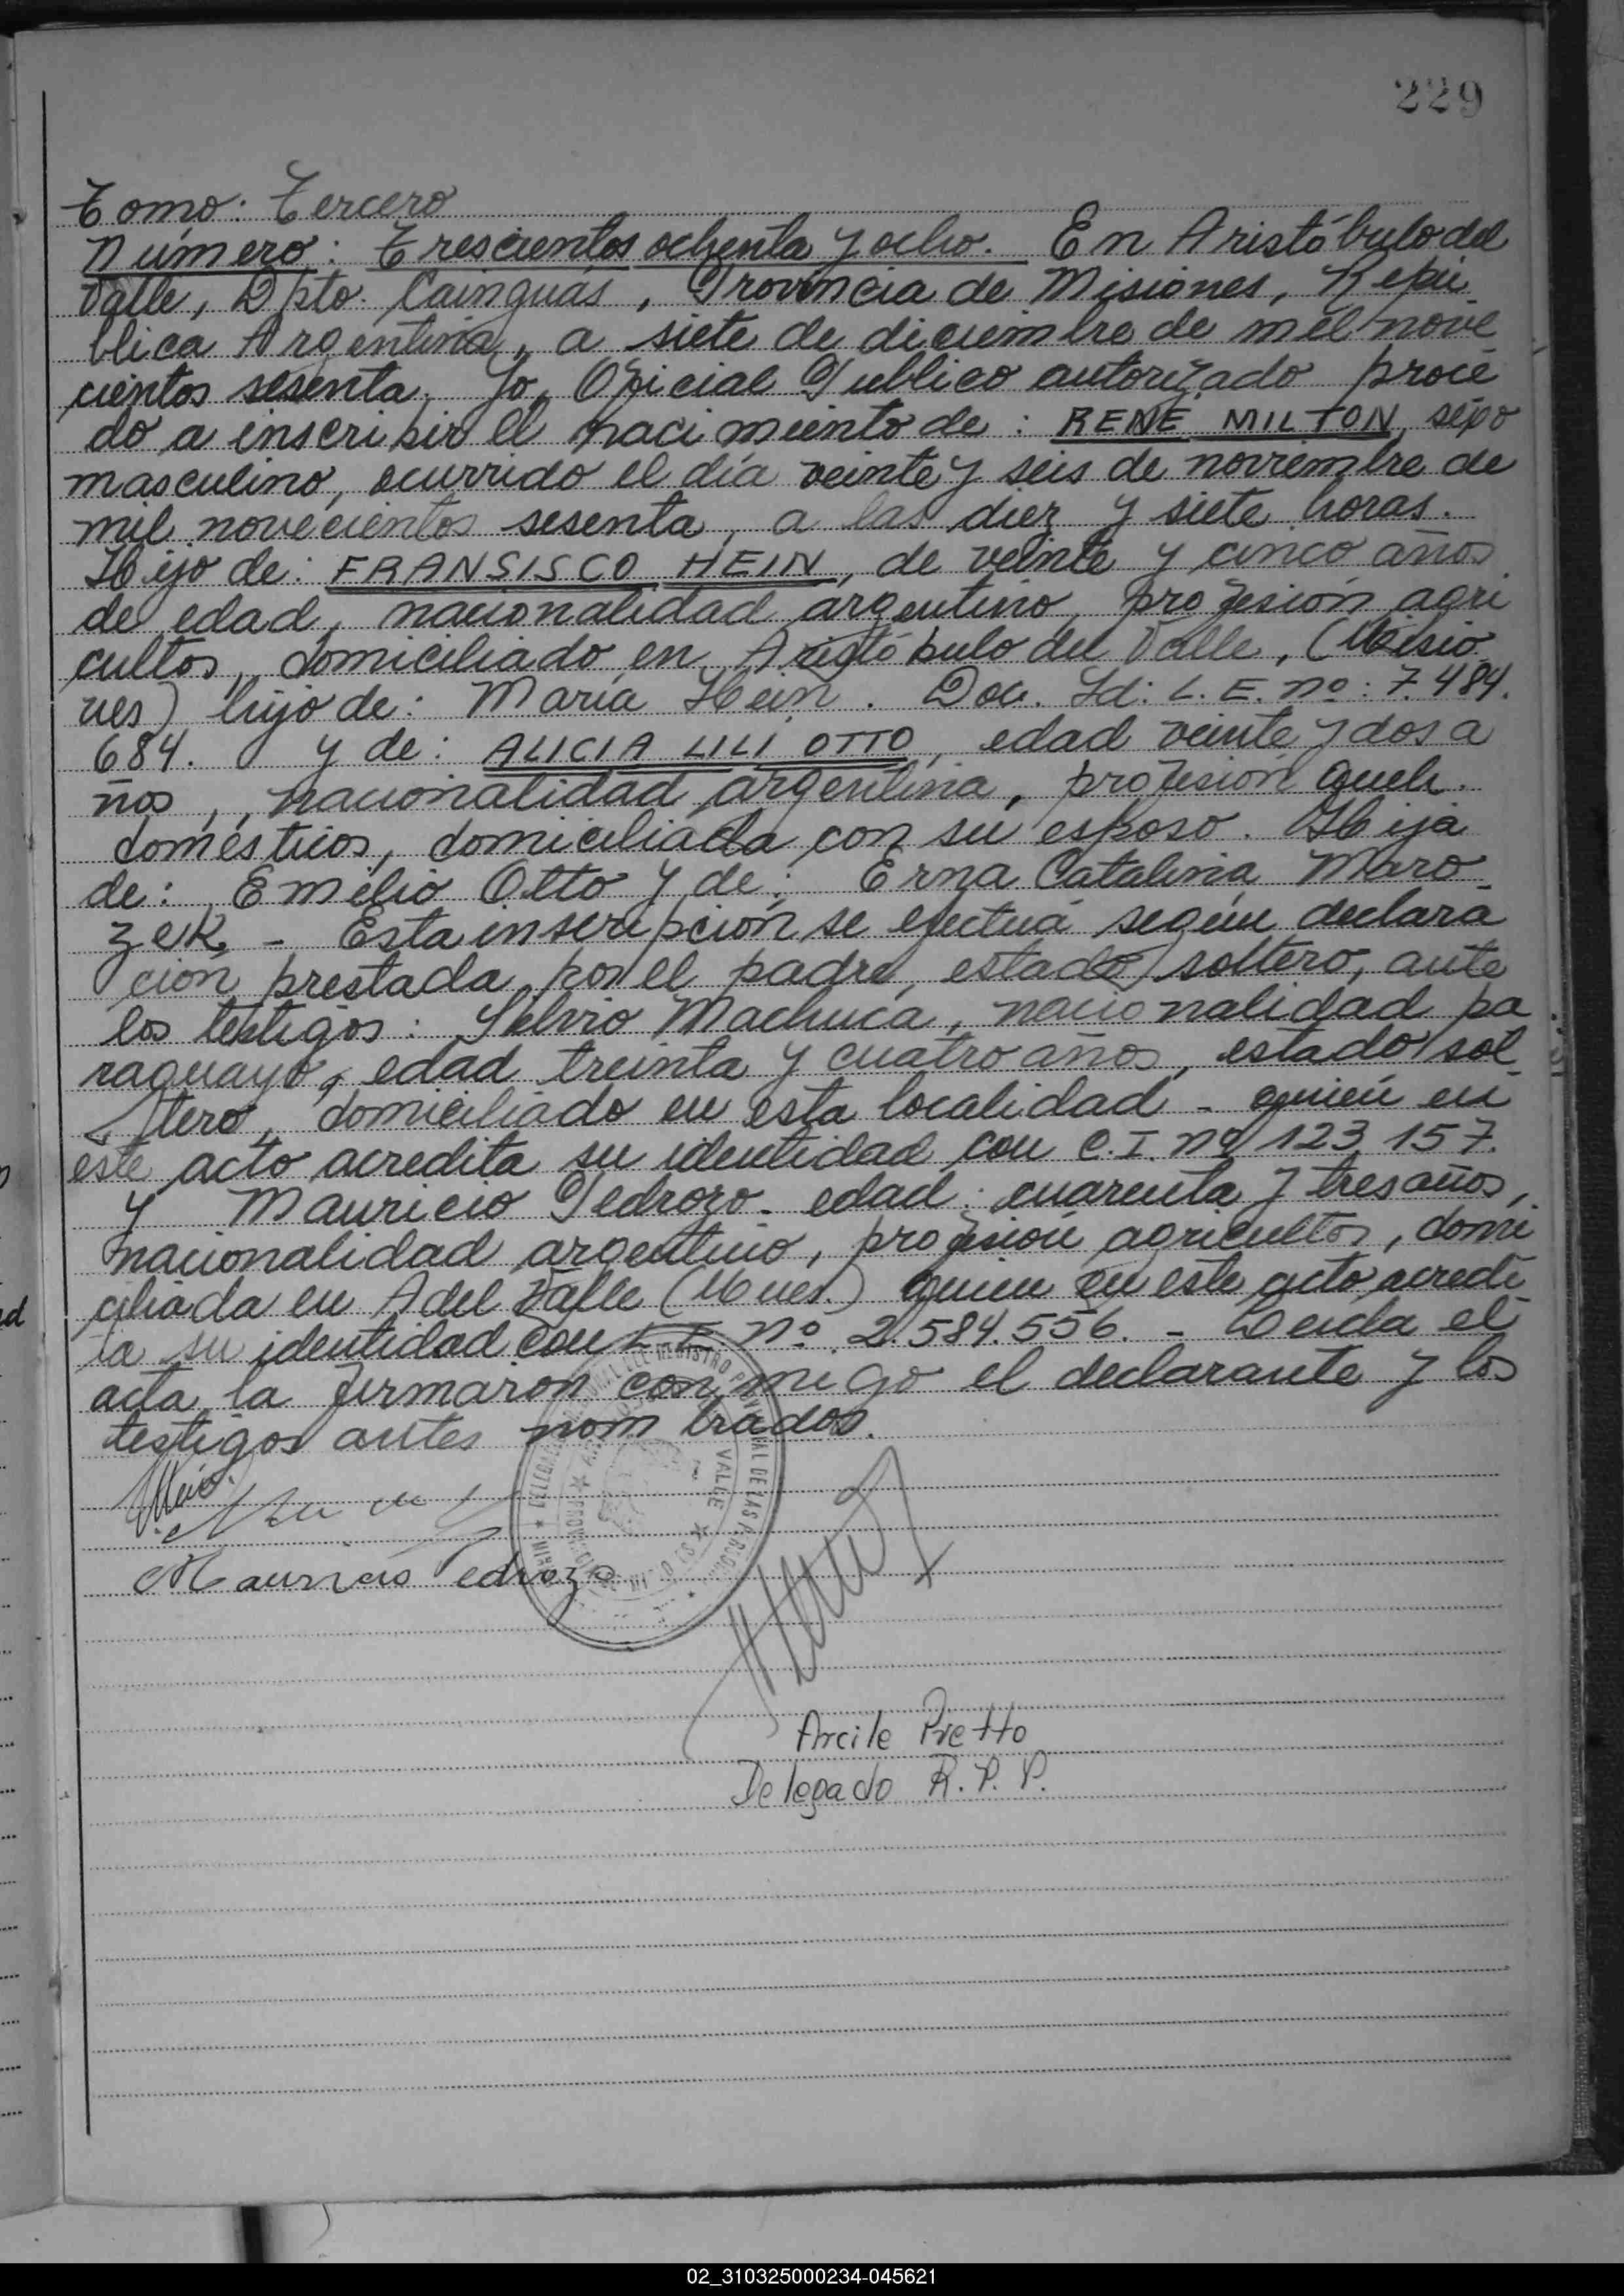 229
Tomo: Tercero
Número: Trescientos ochenta y ocho. En Aristóbulo del
Valle, Dpto. Cainguás, Provincia de Misiones, Repú
blica Argentina, a siete de diciembre de mil nove
cientos sesenta, Yo, Oficial Publico autorizado proce
do a inscribir el nacimiento de: RENE MILTON, sexo
masculino, ocurrido el día veinte y seis de noviembre de
mil novecientos sesenta, a las diez y siete horas.
Hijo de: FRANSISCO HEIN, de veinte y cinco años
de edad, nacionalidad argentino, profesión agri
cultor, domiciliado en Aristóbulo del Valle, (Misio
nes) hijo de: María Hein. Doc. Id: L. E. nº: 7.484.
684. y de: ALICIA LILI OTTO, edad veinte y dos a
ños, , nacionalidad argentina, profesión queh.
domésticos, domiciliada con su esposo. Hija
de: Emilio Otto y de: Erna Catalina Maro-
zek. - Esta inscripción se efectuá según declara
ción prestada por el padre, estado soltero, ante
los testigos: Silvio Machuca, nacionalidad pa
raguayo, edad treinta y cuatro años, estado sol
tero, domiciliado en esta localidad - quien en
este acto acredita su identidad con C.I. nº 123.157.
y Mauricio Pedrozo - edad: cuarenta y tres años,
nacionalidad argentino, profesión agricultor, domi
ciliada en A del Valle (Mnes.) quien en este acto acredi
ta su identidad con L E nº 2.584.556. - Leida el
acta la firmaron conmigo el declarante y los
testigos antes nombrados.
Mauricio Pedrozo
Arcile Pretto
Delegado R. P. P.
02_310325000234-045621